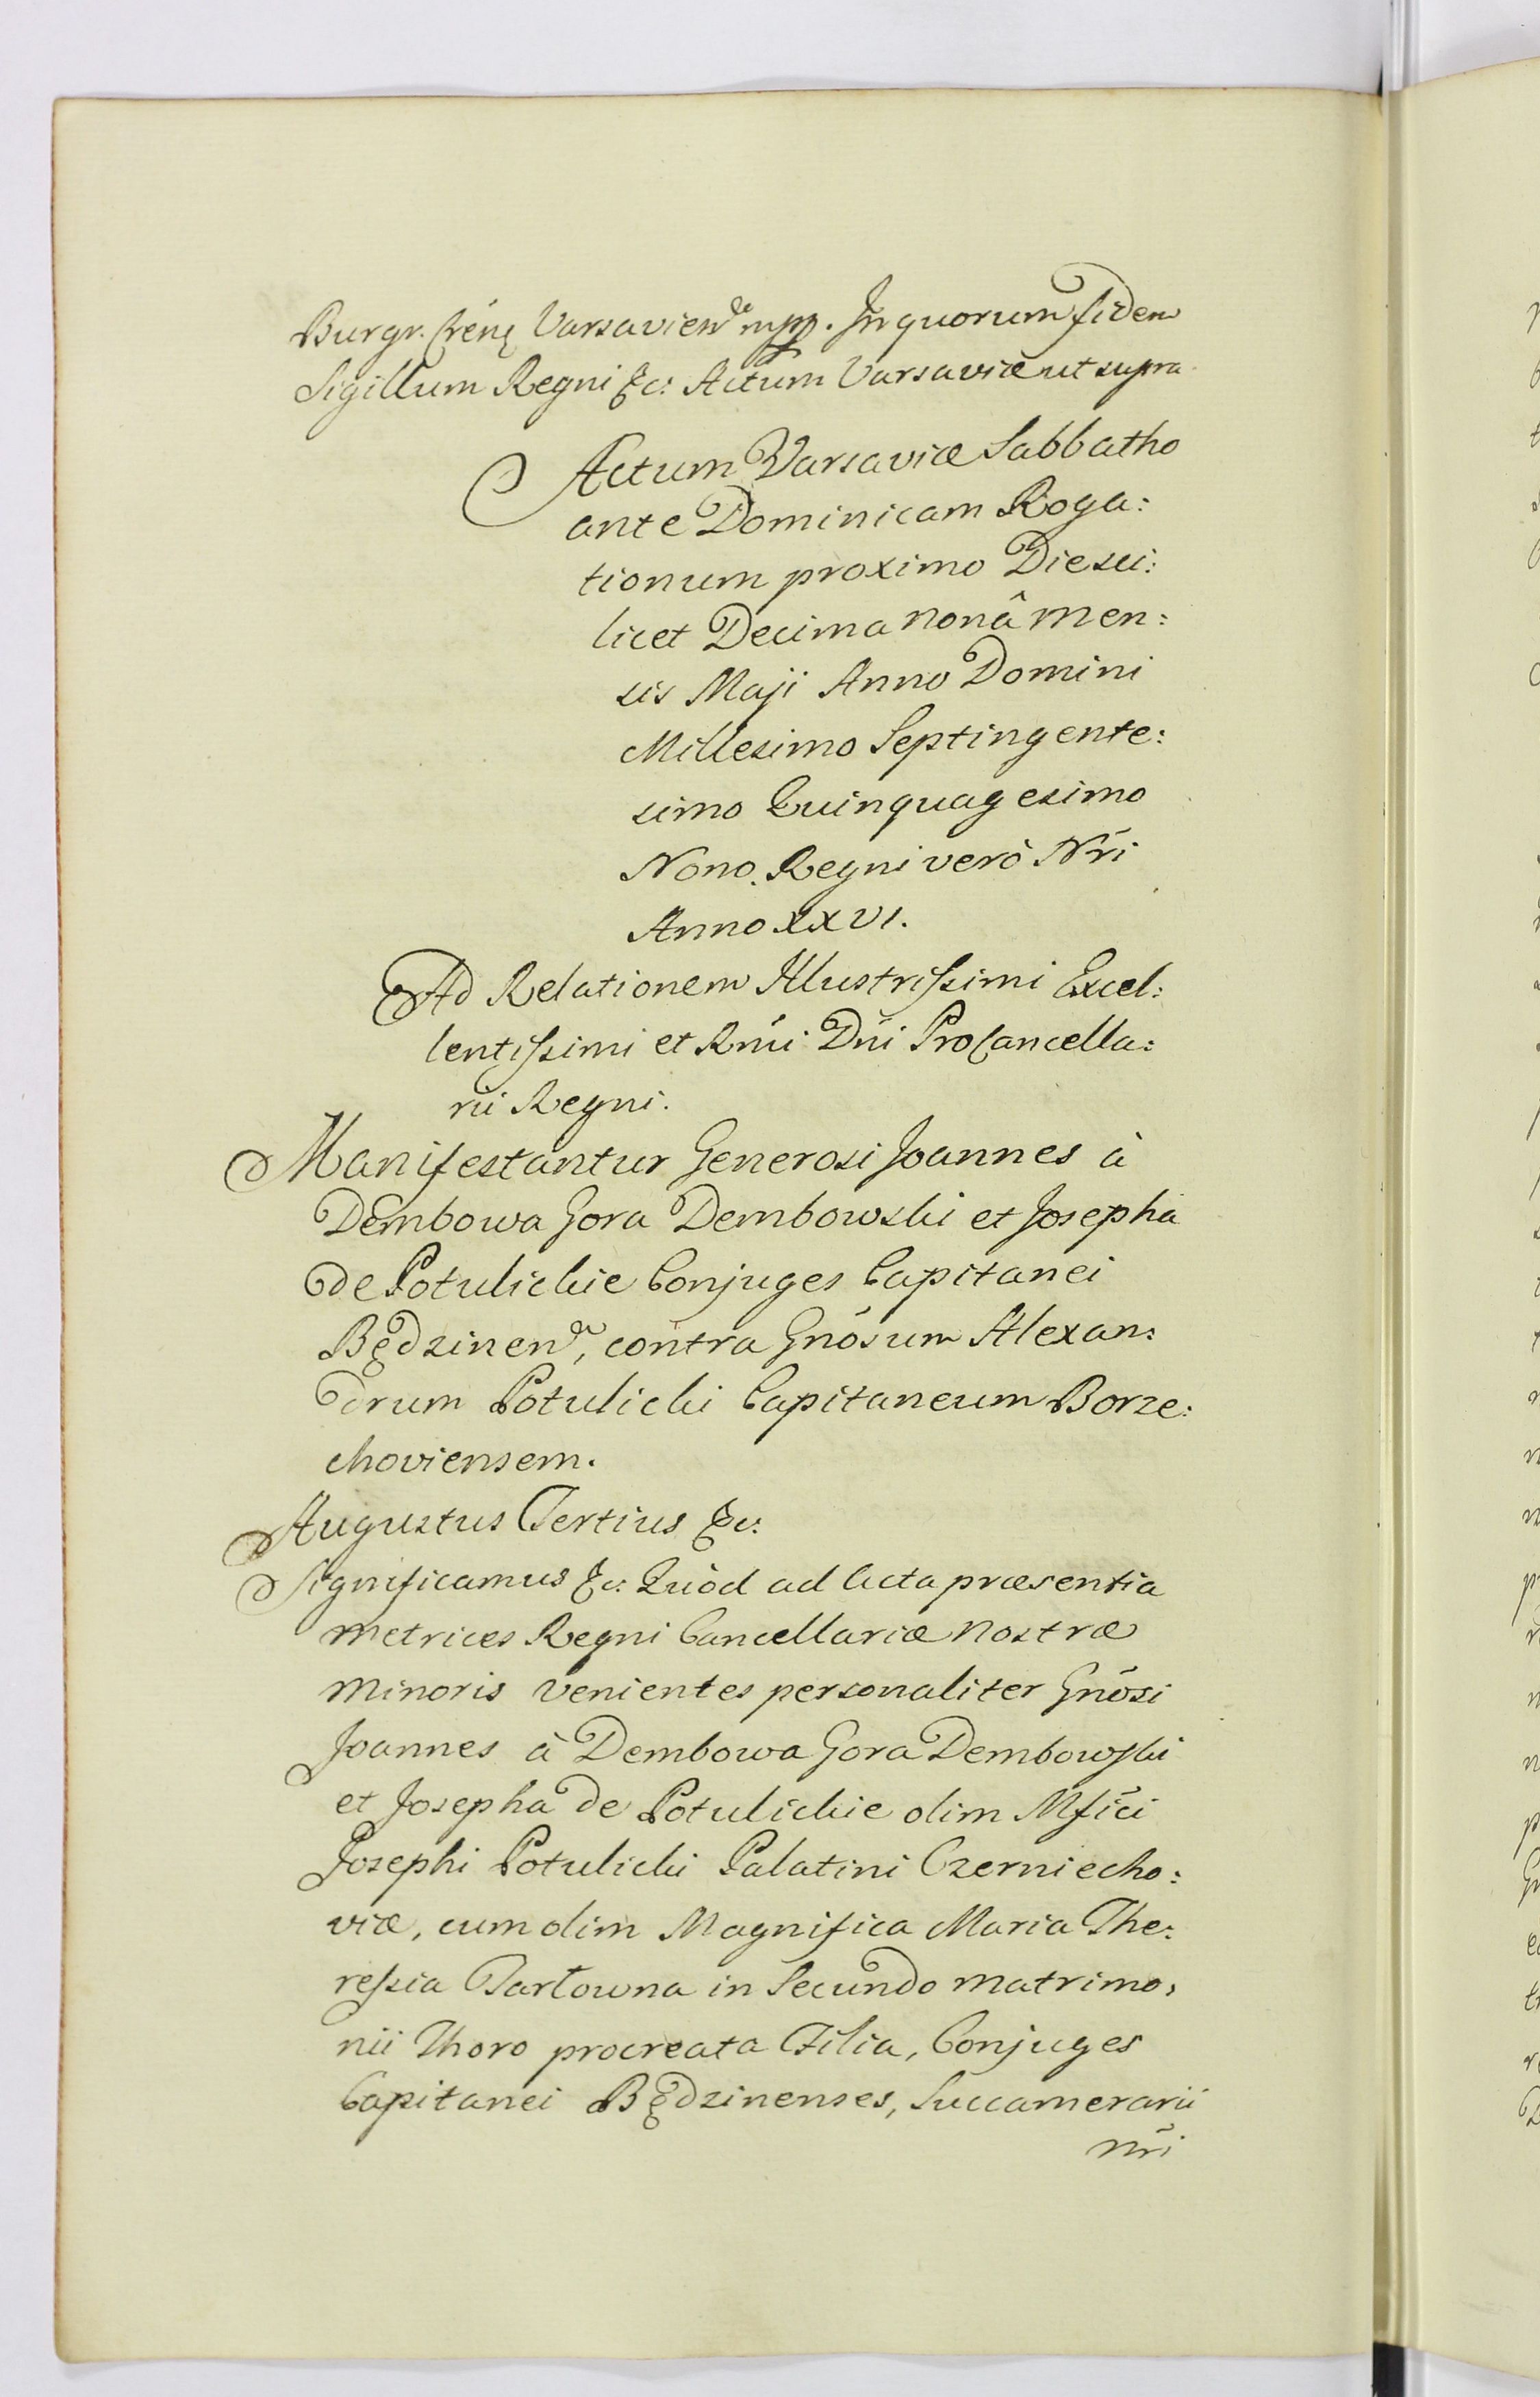 Burgr. Crêng Varsavien̄ mpp. In quorum fidem
Sigillum Regni &c: Actum Varsaviæ ut supra.
Actum Varsaviæ Sabbatho
ante Dominicam Roga:
tionum proximo Die sci:
licet Decima nonâ men:
sis Maji Anno Domini
Millesimo Septingente:
simo Quinquagesimo
Nono. Regni verò Nr̄i
Anno XXVI.
Ad Relationem Illustrissimi Excel:
lentissimi et Rm̄i Dn̄i ProCancella:
rii Regni.
Manifestantur Generosi Joannes à
Dembowa Gora Dembowski et Josepha
de Potulickie Conjuges Capitanei
Będzinen̄, contra Gnōsum Alexan:
drum Potulicki Capitaneum Borze:
choviensem.
Augustus Tertius &c:
Significamus &c: Quòd ad Acta præsentia
metrices Regni Cancellariæ nostræ
minoris venientes personaliter Gnōsi
Joannes à Dembowa Gora Dembowski
et Josepha de Potulickie olim Mfīci
Josephi Potulicki Palatini Czerniecho:
viæ, cum olim Magnifica Maria The:
ressia Tarłowna in Secundo matrimo:
nii Thoro procreata Filia, Conjuges
Capitanei Będzinenses, Succamerarii
nr̄i